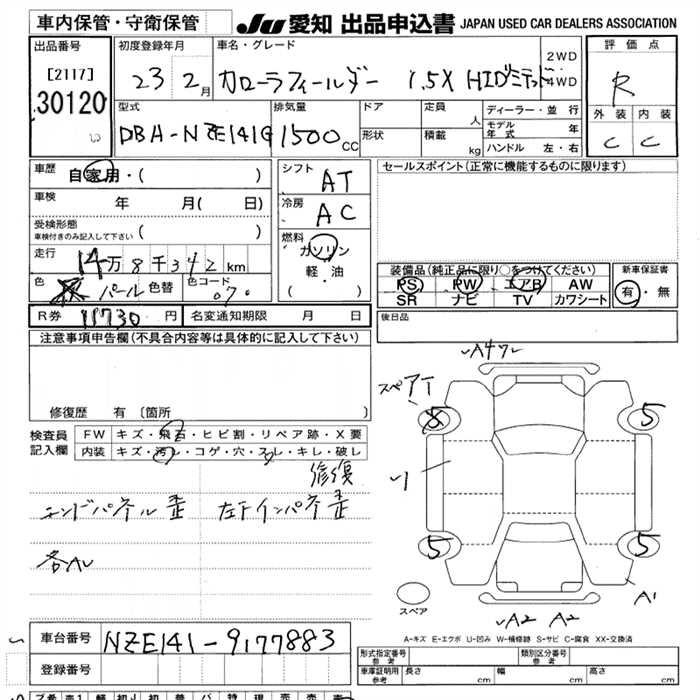 車内保管・守衛保管
JU 愛知 出品申込書 JAPAN USED CAR DEALERS ASSOCIATION
出品番号
[2117]
30120
初度登録年月
23 2月
車名・グレード
カローラフィールダー 1.5X HID
2WD
4WD
評価点
R
外装 内装
C C
型式
DBA-NZE141G
排気量
1500cc
ドア
形状
定員 人
積載 kg
ディーラー・並行
モデル年式 年
ハンドル 左・右
車歴
自家用・( )
車検
年 月( 日)
受検形態
車検付きのみ記入して下さい ( )
走行
14万8千342km
色
パール 色替
色コード
070
R券 11730円
名変通知期限 月 日
シフト
AT
冷房
AC
燃料
ガソリン
軽・油
( )
セールスポイント(正常に機能するものに限ります)
装備品(純正品に限り○をつけてください)
PS PW エアB AW
SR ナビ TV カワシート
新車保証書
有・無
後日品
注意事項申告欄(不具合内容等は具体的に記入して下さい)
修復歴 有 〔箇所 〕
検査員記入欄
FW キズ・飛石・ヒビ割・リペア跡・X要
内装 キズ・汚レ・コゲ・穴・スレ・キレ・破レ
修復
エンドパネル歪 左下インパネ歪
各AU
A4ワレ
スペアT
5
5
5
5
スペア
A1
A2 A2
A-キズ E-エクボ U-凹み W-補修跡 S-サビ C-腐食 XX-交換済
車台番号
NZE141-9177883
登録番号
形式指定番号
参考
類別区分番号
参考
車庫証明用
参考
長さ cm
幅 cm
高さ cm